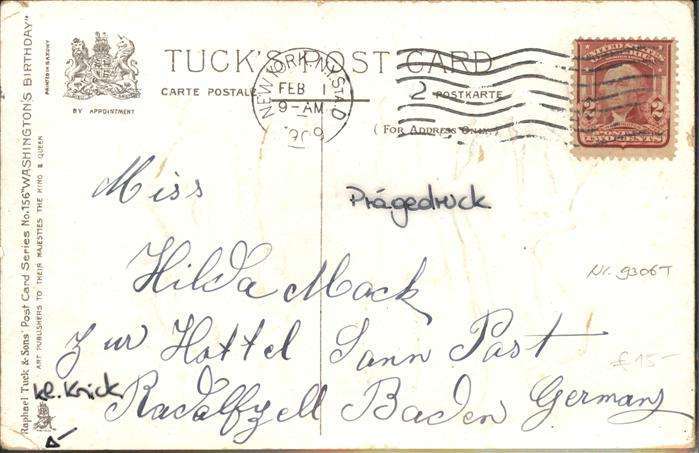 TUCK'S POST CARD
CARTE POSTALE
POSTKARTE
(FOR ADDRESS ONLY.)
BY APPOINTMENT
PRINTED IN SAXONY
Raphael Tuck & Sons' Post Card Series No. 156 "WASHINGTON'S BIRTHDAY"
ART PUBLISHERS TO THEIR MAJESTIES THE KING & QUEEN
NEW YORK, N.Y. STA. D
FEB 1
9-AM
1909
2
UNITED STATES
2 2
TWO CENTS
Miss
Prägedruck
Hilda Mack
Nr. 9306T
zur Hottel Sonn Post
£15-
kl. Knick
Radolfzell Baden Germany